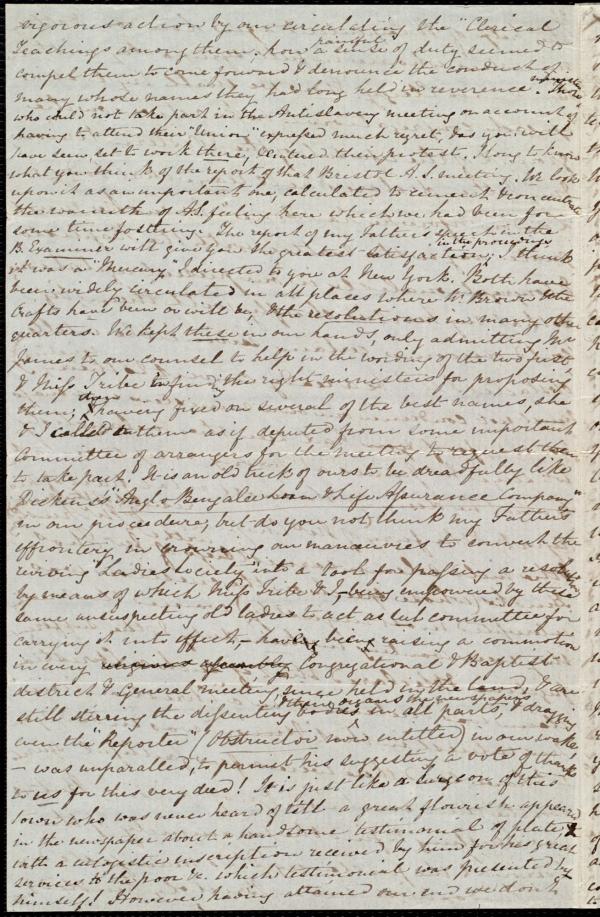 vigorous action by our circulating the "Clerical
Teachings among them; how a painful sense of duty seemed to
compel them to come forward & denounce the conduct of
many whose names they had long held in reverence. Those
who could not take part in the Antislavery meeting on account of
having to attend their "Union" expressed much regret, & as you will
have seen, set to work there, & entered their protest. I long to know
what you think of the report of that Bristol A.S. meeting. We look
upon it as an important one, calculated to cement & concentrate
the warmth of A.S. feeling here which we had been for
some time fostering. The report of my Father's speech in the
B. Examiner will give you the greatest satisfaction; in the proceedings I think
it was a "Mercury" I directed to you at New York. Both have
been widely circulated in all places where W. Brown & the
Crafts have been or will be, & the resolutions in many other
quarters. We kept these in our hands, only admitting Mr
James to our counsel to help in the wording of the two first,
& Miss Tribe to find the right ministers for proposing
them; & having fixed on several of the best names, she
& I called on them as if deputed from some important
Committee of arrangers for the meeting to request them
to take part. It is an old trick of ours to be dreadfully like
Dickens's "Anglo Bengalee Loan & Life Assurance Company"
in our procedure; but do you not think my Father's
effrontery in crowning our manœuvres to convert the
reviving "Ladies society" into a tool for passing a resolution
by means of which Miss Tribe & I, being empowered by these
same unsuspecting old ladies to act as sub committee for
carrying it into effect, – having been raising a commotion
in every Congregational & Baptist
district & General meeting since held in the land, & are
still stirring the dissenting bodies in all parts, & dragging
even the "Reporter" (Obstructor now entitled) in our wake,
– was unparalled, to permit his suggesting a vote of thanks
to us for this very deed! It is just like a surgeon of this
town who was never heard of till a great flourish appeared
in the newspaper about a handsome testimonial of plate,
with a eulogistic inscription received by him for his great
services to the poor &c. which testimonial was presented by
himself! However having attained our end we don't